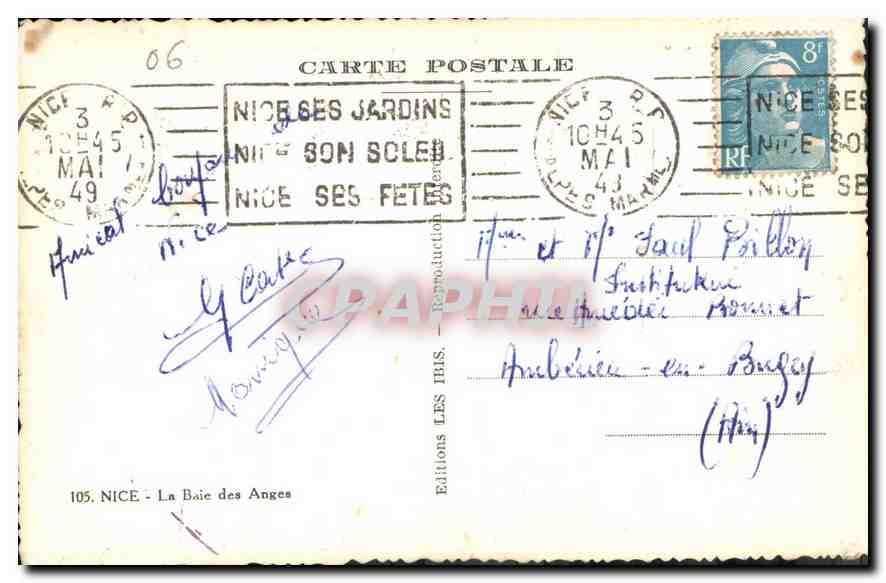 06
CARTE POSTALE
NICE R.P.
3
10H45
MAI
49
NICE SES JARDINS
NICE SON SOLEIL
NICE SES FETES
NICE R.P.
3
10H45
MAI
49
ALPES MARMES
8F
POSTES
RF
NICE SES
NICE SO
NICE SE
Amical bonjour de
Nice
Monique
Mme et Mr Paul Billon
Instituteur
rue Amédée Bonnet
Ambérieu-en-Bugey
(Ain)
CPAPHIL
Editions LES IBIS. — Reproduction Interdite
105. NICE - La Baie des Anges